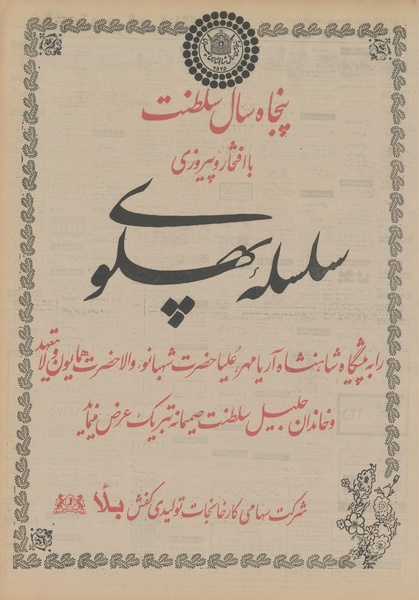 ۲۵۳۵
پنجاه سال سلطنت
با افتخار و پیروزی
سلسلهٔ پهلوی
را به پیشگاه شاهنشاه آریامهر، علیاحضرت شهبانو، والاحضرت همایون ولایتعهد
و خاندان جلیل سلطنت صمیمانه تبریک عرض مینماید
شرکت سهامی کارخانجات تولیدی کفش بلا